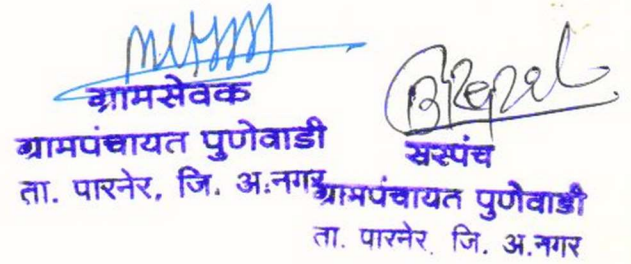 ग्रामसेवक
ग्रामपंचायत पुणेवाडी
ता. पारनेर, जि. अ.नगर
सरपंच
ग्रामपंचायत पुणेवाडी
ता. पारनेर. जि. अ.नगर